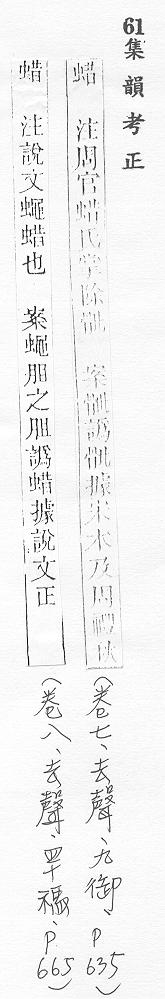 61集韻考正
蜡 注周官蜡氏掌除骴 案骴譌骩據宋本及周禮狄
(卷七、去聲、九御、P635)
蜡 注說文蠅蜡也 案蠅胆之胆譌蜡據說文正
(卷八、去聲、四十禡、P.665)